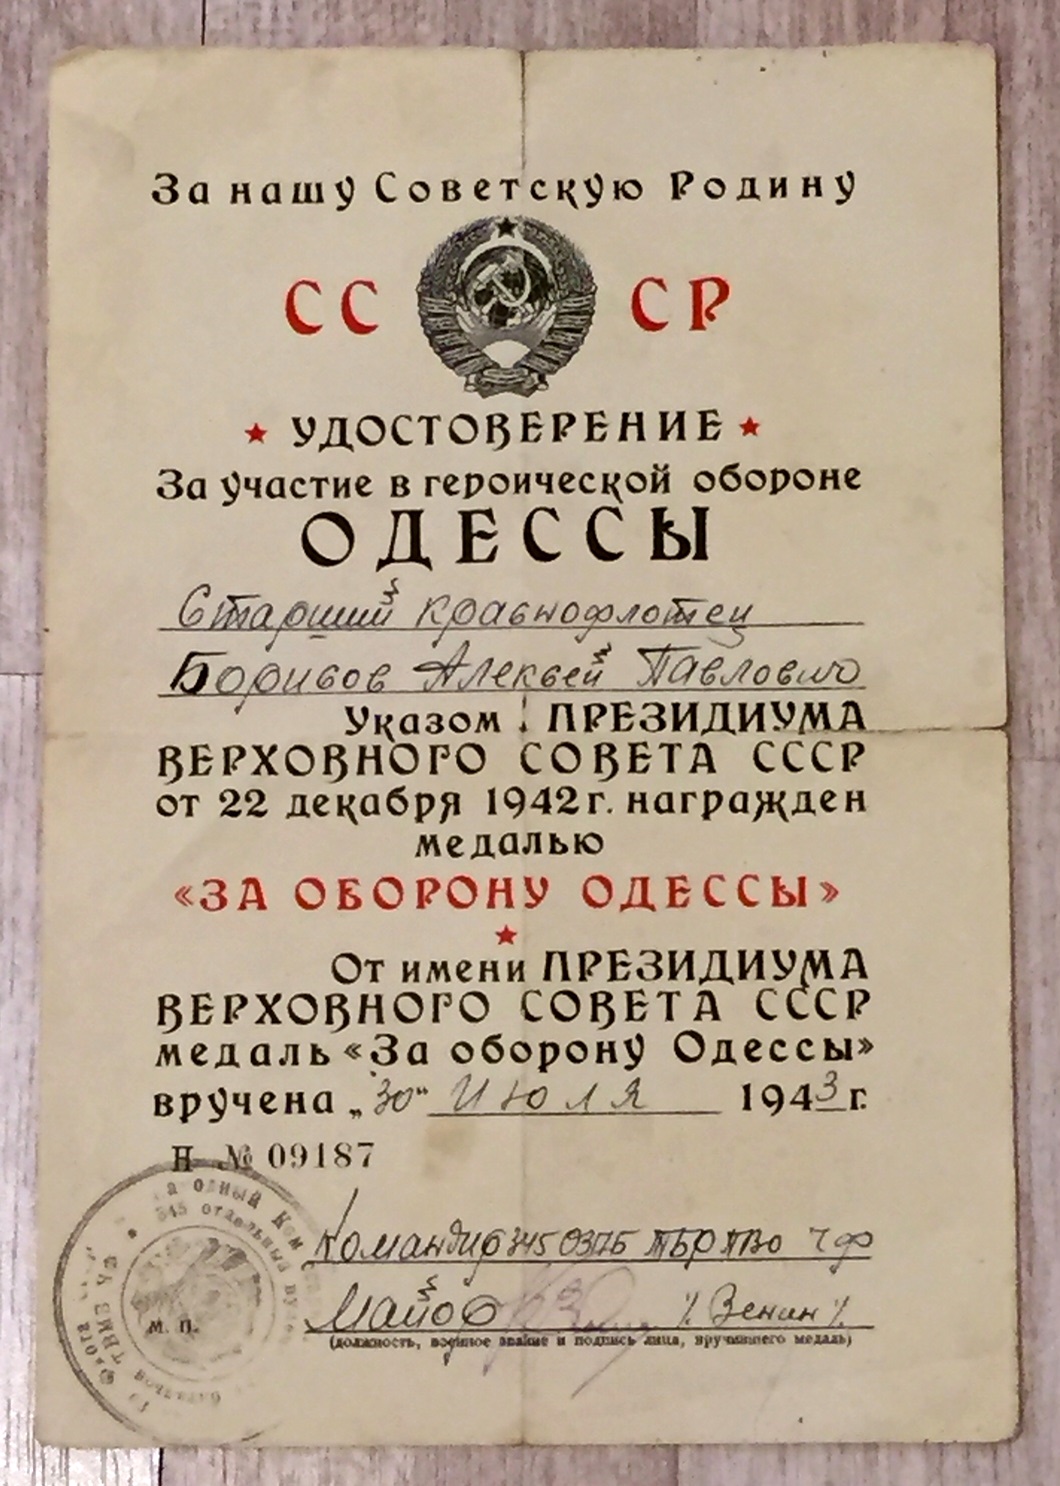 За нашу Советскую Родину
СССР
УДОСТОВЕРЕНИЕ
За участие в героической обороне
ОДЕССЫ
Старший краснофлотец
Борисов Алексей Павлович
Указом ПРЕЗИДИУМА
ВЕРХОВНОГО СОВЕТА СССР
от 22 декабря 1942 г. награжден
медалью
«ЗА ОБОРОНУ ОДЕССЫ»
От имени ПРЕЗИДИУМА
ВЕРХОВНОГО СОВЕТА СССР
медаль «За оборону Одессы»
вручена „30" Июля 1943 г.
Н № 09187
345 отдельный
Командир 345 ТБР ПВО ЧФ
М. П.
Майор /Зенин/
(должность, военное звание и подпись лица, вручившего медаль)